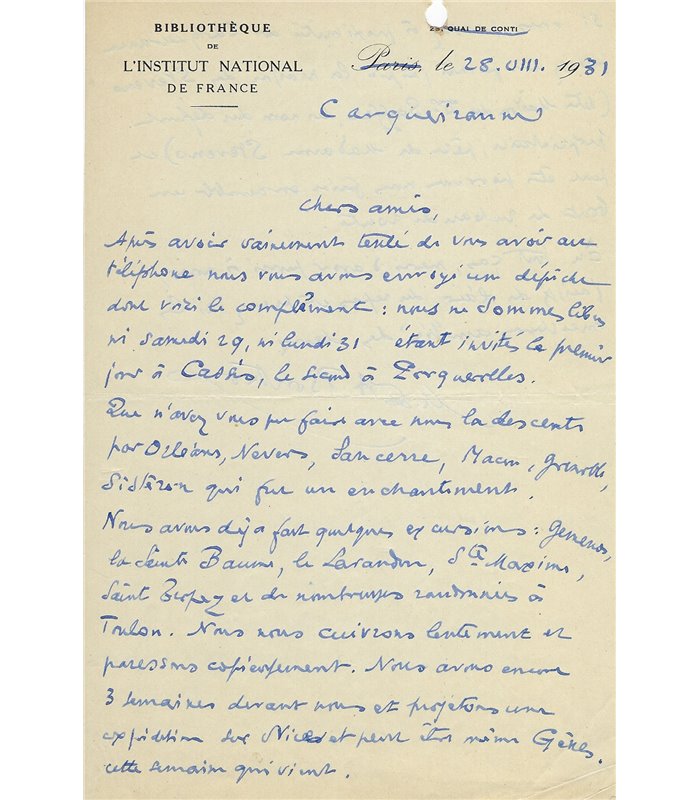 BIBLIOTHÈQUE
DE
L'INSTITUT NATIONAL
DE FRANCE
23, QUAI DE CONTI
Paris, le 28.VIII. 1931
Carqueiranne
Chers amis,
Après avoir vainement tenté de vous avoir au
téléphone nous vous avons envoyé un dépêche
dont voici le complément : nous ne sommes libres
ni samedi 29, ni lundi 31 étant invités le premier
jour à Cassis, le second à Porquerolles.
Que n'avez vous pu faire avec nous la descente
par Orléans, Nevers, Sancerre, Macon, Grenoble,
Sistéron qui fut un enchantement.
Nous avons déjà fait quelques excursions : Gemenos,
la Sainte Baume, le Lavandou, Ste Maxime,
Saint Tropez et de nombreuses randonnées à
Toulon. Nous nous cuivrons lentement et
paressons copieusement. Nous avons encore
3 semaines devant nous et projetons une
expédition sur Nice et peut être même Gênes.
cette semaine qui vient.